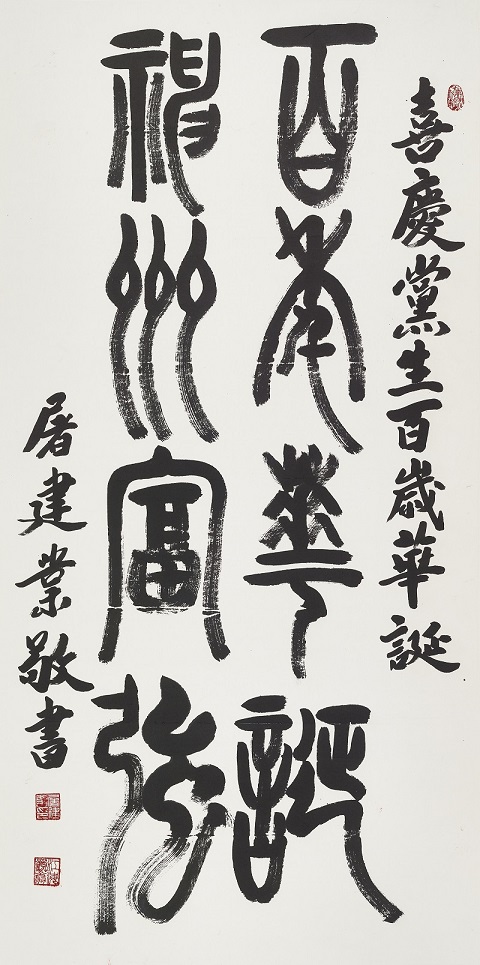 喜慶黨生百歲華誕
百年華誕
神州富強
屠建業敬書